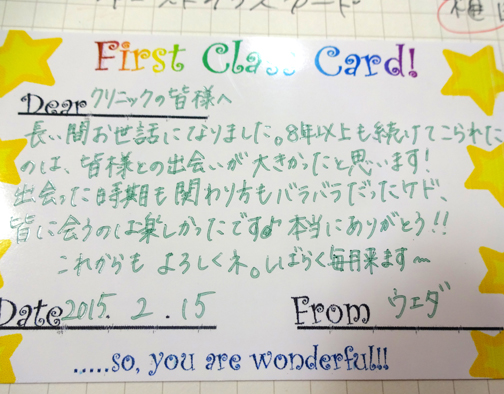 First Class Card!
Dear クリニックの皆様へ
長い間お世話になりました。8年以上も続けてこられた
のは、皆様との出会いが大きかったと思います!
出会った時期も関わり方もバラバラだったケド、
皆に会うのは楽しかったです♪本当にありがとう!!
これからもよろしくネ。しばらく毎月来ます〜
Date 2015. 2. 15
From ウエダ
.....so, you are wonderful!!!